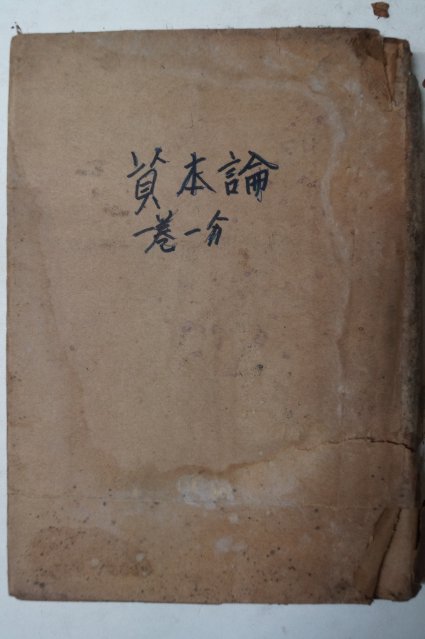 資本論
一卷一分